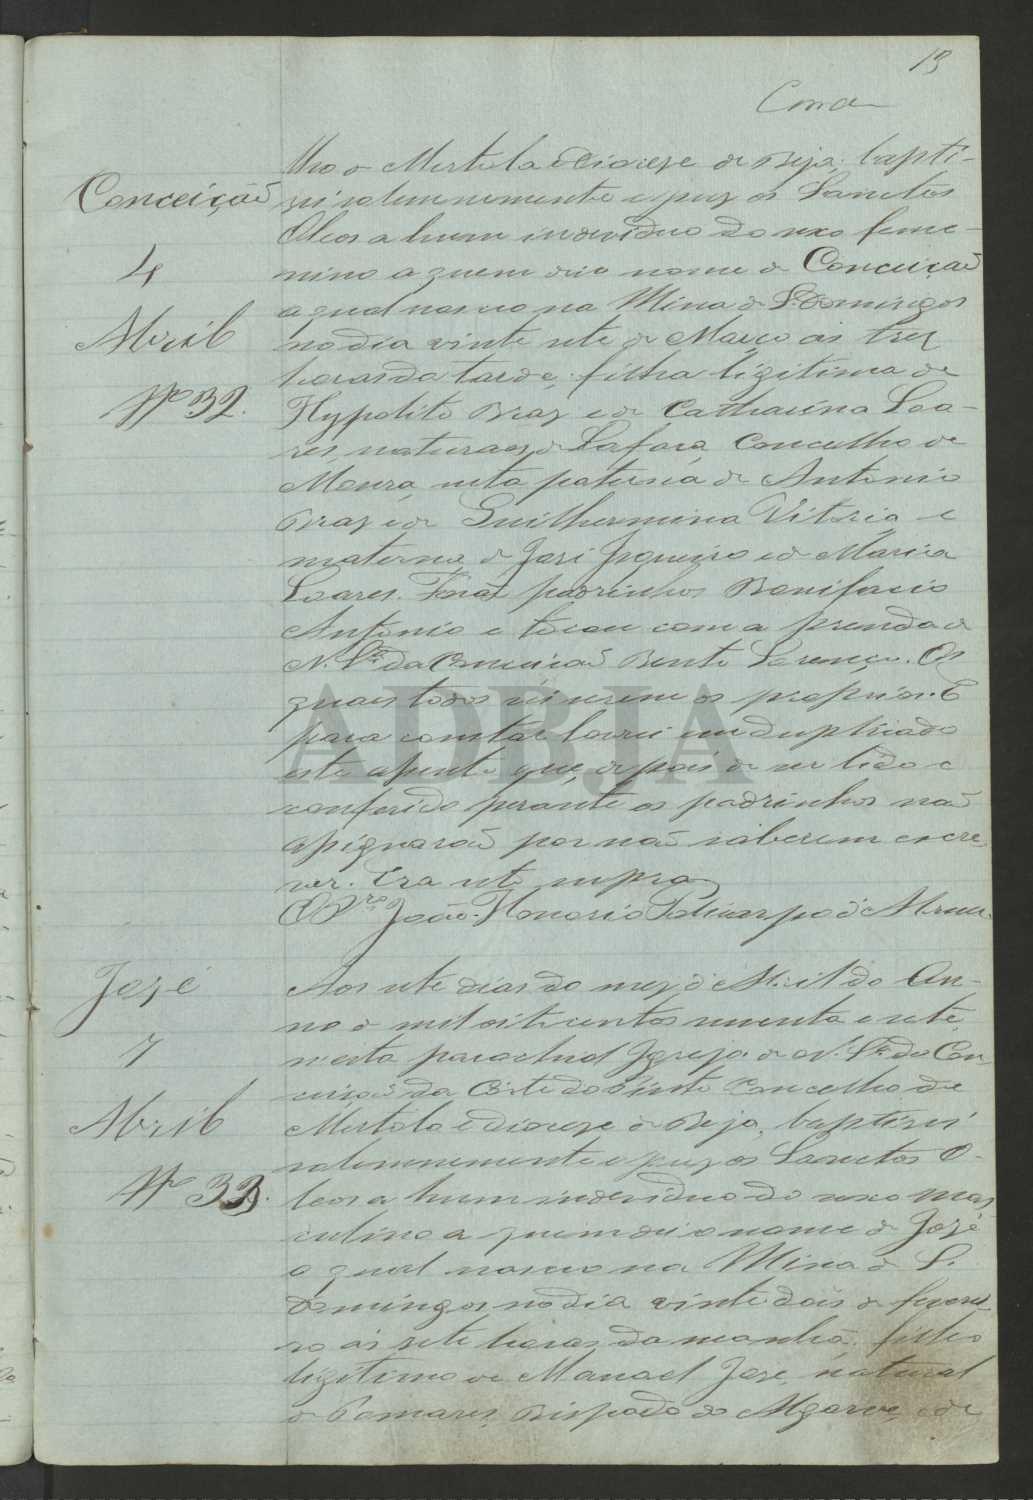 13
Conceição
4
Abril
Nº 32.
lho de Mertola e Diocese de Beja, bapti-
zei solemnemente e puz os Sanctos
Oleos a hum individuo do sexo feme-
nino a quem dei o nome de Conceição
a qual nasceo na Mina de S. Domingos
no dia vinte sete de Março ás trez
horas da tarde, filha legitima de
Hypolito Braz e de Catharina Soa-
res naturaes de Safara, Concelho de
Moura, neta paterna de Antonio
Braz e de Guilhermina Vitoria e
materna de José e de Maria
Soares. Forão padrinhos Bonifacio
Antonio e tocou com a prenda de
N. Srª da Conceição Bento Lourenço. Os
quaes todos serem os proprios. E
para constar lavrei em duplicado
este assento que, depois de ser lido e
conferido perante os padrinhos não
assignarão por não saberem escre
ver. Era ut supra
O Pro João Honorio Policarpo d'Abreu.
José
7
Abril
Nº 33.
Aos sete dias do mez d'Abril do An-
no de mil oitocentos noventa e sete,
n'esta parochial Igreja de N. Srª da Con-
ceição da Côrte do Pinto Concelho de
Mertola e diocese de Beja, baptizei
solemnemente e puz os Sanctos O-
leos a hum individuo do sexo mas
culino a quem dei o nome de José
o qual nasceo na Mina de S.
Domingos no dia vinte dois de feverei
ro ás sete horas da manhã, filho
legitimo de Manoel José, natural
de Pomares, Bispado do Algarve, e de
ADBJA